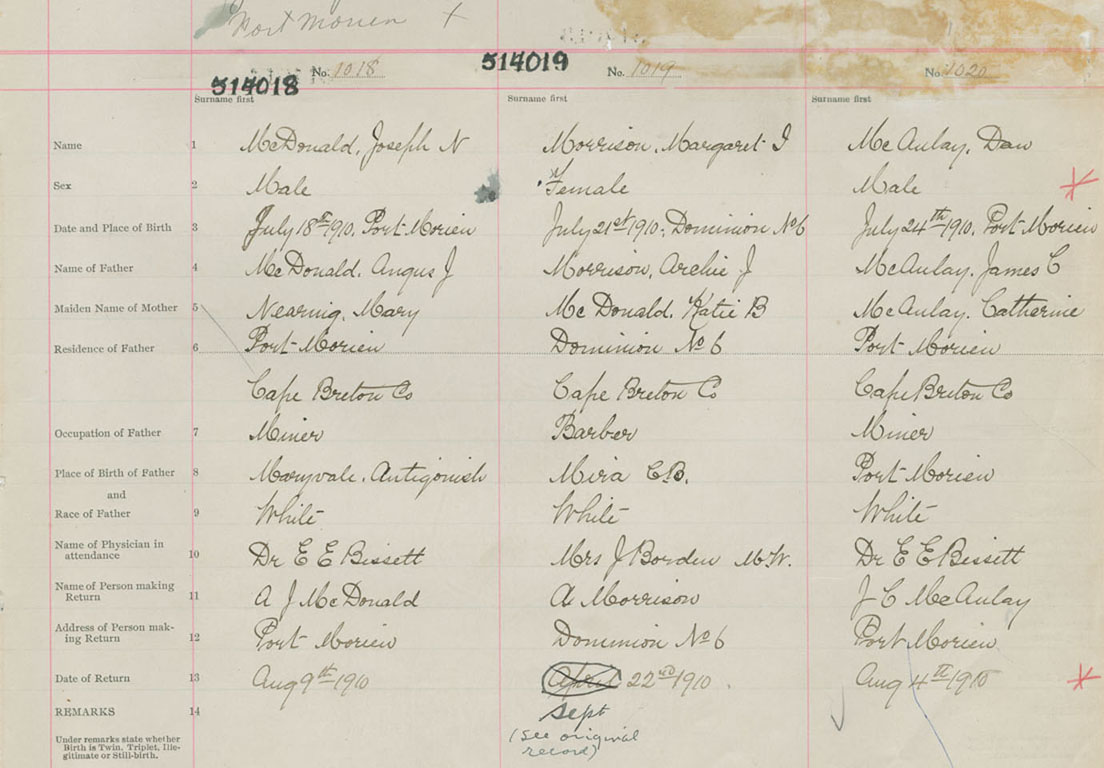 Port Morien X
514018 No. 1018 514019 No. 1019 No. 1020
Surname first Surname first Surname first
Name 1 McDonald, Joseph N Morrison, Margaret J McAulay, Dan
Sex 2 Male Female Male X
Date and Place of Birth 3 July 18th 1910, Port Morien July 21st 1910, Dominion No 6 July 24th 1910, Port Morien
Name of Father 4 McDonald, Angus J Morrison, Archie J McAulay, James C
Maiden Name of Mother 5 Nearnig, Mary McDonald, Katie B McAulay, Catherine
Residence of Father 6 Port Morien Dominion No 6 Port Morien
Cape Breton Co Cape Breton Co Cape Breton Co
Occupation of Father 7 Miner Barber Miner
Place of Birth of Father 8 Maryvale, Antigonish Mira C.B. Port Morien
and
Race of Father 9 White White White
Name of Physician in
attendance 10 Dr E E Bissett Mrs J Borden M.W. Dr E E Bissett
Name of Person making
Return 11 A J McDonald A Morrison J C McAulay
Address of Person mak-
ing Return 12 Port Morien Dominion No 6 Port Morien
Date of Return 13 Aug 9th 1910 April 22nd 1910. Aug 4th 1910 X
REMARKS 14 Sept
(See original
record)
Under remarks state whether
Birth is Twin, Triplet, Ille-
gitimate or Still-birth.